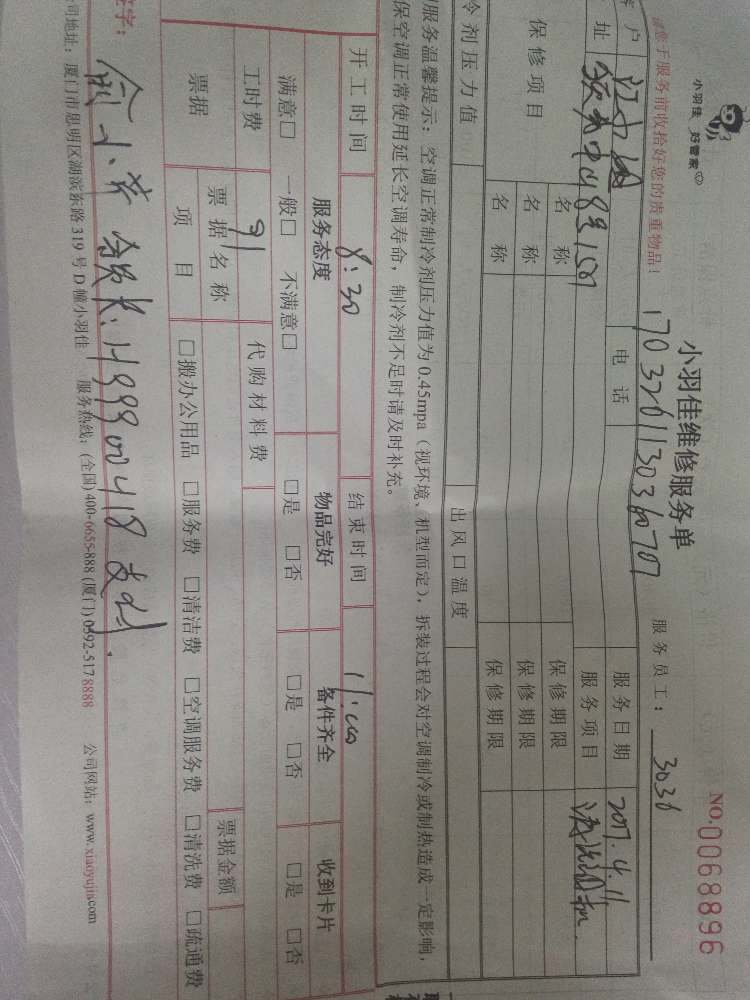 小羽佳 好管家
NO.0068896
小羽佳维修服务单
请您于服务前收拾好您的贵重物品！
1703261130360707
服务员工： 3036
户
电 话
服务日期 2017.4.11
址
服务项目
保 修 项 目
名 称
保修期限
名 称
保修期限
名 称
保修期限
冷剂压力值
出风口温度
服务温馨提示：空调正常制冷剂压力值为 0.45mpa（视环境、机型而定），拆装过程会对空调制冷或制热造成一定影响，
保空调正常使用延长空调寿命，制冷剂不足时请及时补充。
开工时间 8:30 结束时间 11:00
服务态度 物品完好 备件齐全 收到卡片
满意□ 一般□ 不满意□ □是 □否 □是 □否 □是 □否
工时费 代购材料费
票据 票据名称 票据金额
项 目 □搬办公用品 □服务费 □清洁费 □空调服务费 □清洗费 □疏通费
签字：
司地址：厦门市思明区湖滨东路 319 号 D 幢小羽佳 服务热线：(全国) 400-6655-888 (厦门) 0592-5178888 公司网站：www.xiaoyujia.com